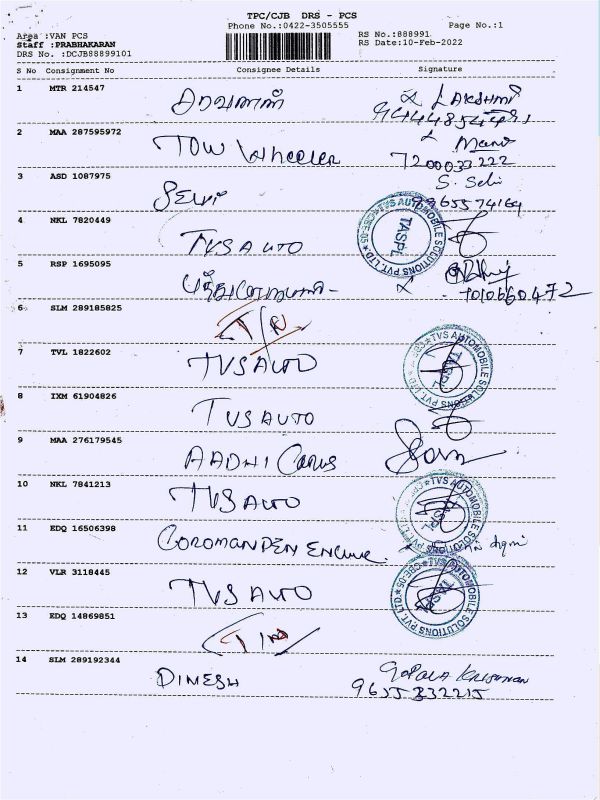 TPC/CJB DRS - PCS
Phone No.:0422-3505555 Page No.:1
Area :VAN PCS RS No.:888991
Staff :PRABHAKARAN RS Date:10-Feb-2022
DRS No. :DCJB88899101
S No Consignment No Consignee Details Signature
1 MTR 214547 LAKSHMI
2 MAA 287595972 TOW Wheeler Mano
7200033222
3 ASD 1087975 செல்வி S. Selvi
4 NKL 7820449 TVS AUTO
TVS AUTOMOBILE SOLUTIONS PVT. LTD CBE-05 TASPL
5 RSP 1695095
7010660472
6 SLM 289185825 T/R
7 TVL 1822602 TVS AUTO
TVS AUTOMOBILE SOLUTIONS PVT. LTD TASPL
8 IXM 61904826 TVS AUTO
9 MAA 276179545 AADHI CARUS
10 NKL 7841213 TVS AUTO
TVS AUTOMOBILE SOLUTIONS PVT. LTD TASPL
11 EDQ 16506398 COROMANDEN ENGINE
12 VLR 3118445 TVS AUTO
TVS AUTOMOBILE SOLUTIONS PVT. LTD CBE-05 TASPL
13 EDQ 14869851 T/R
14 SLM 289192344 DINESH GOPALA KRISHNAN
9655832215